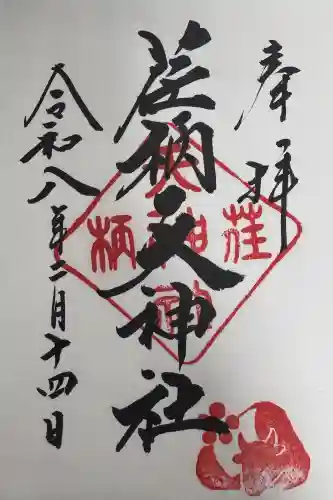 奉拝
荏柄天神社
荏柄天神社
令和八年二月十四日